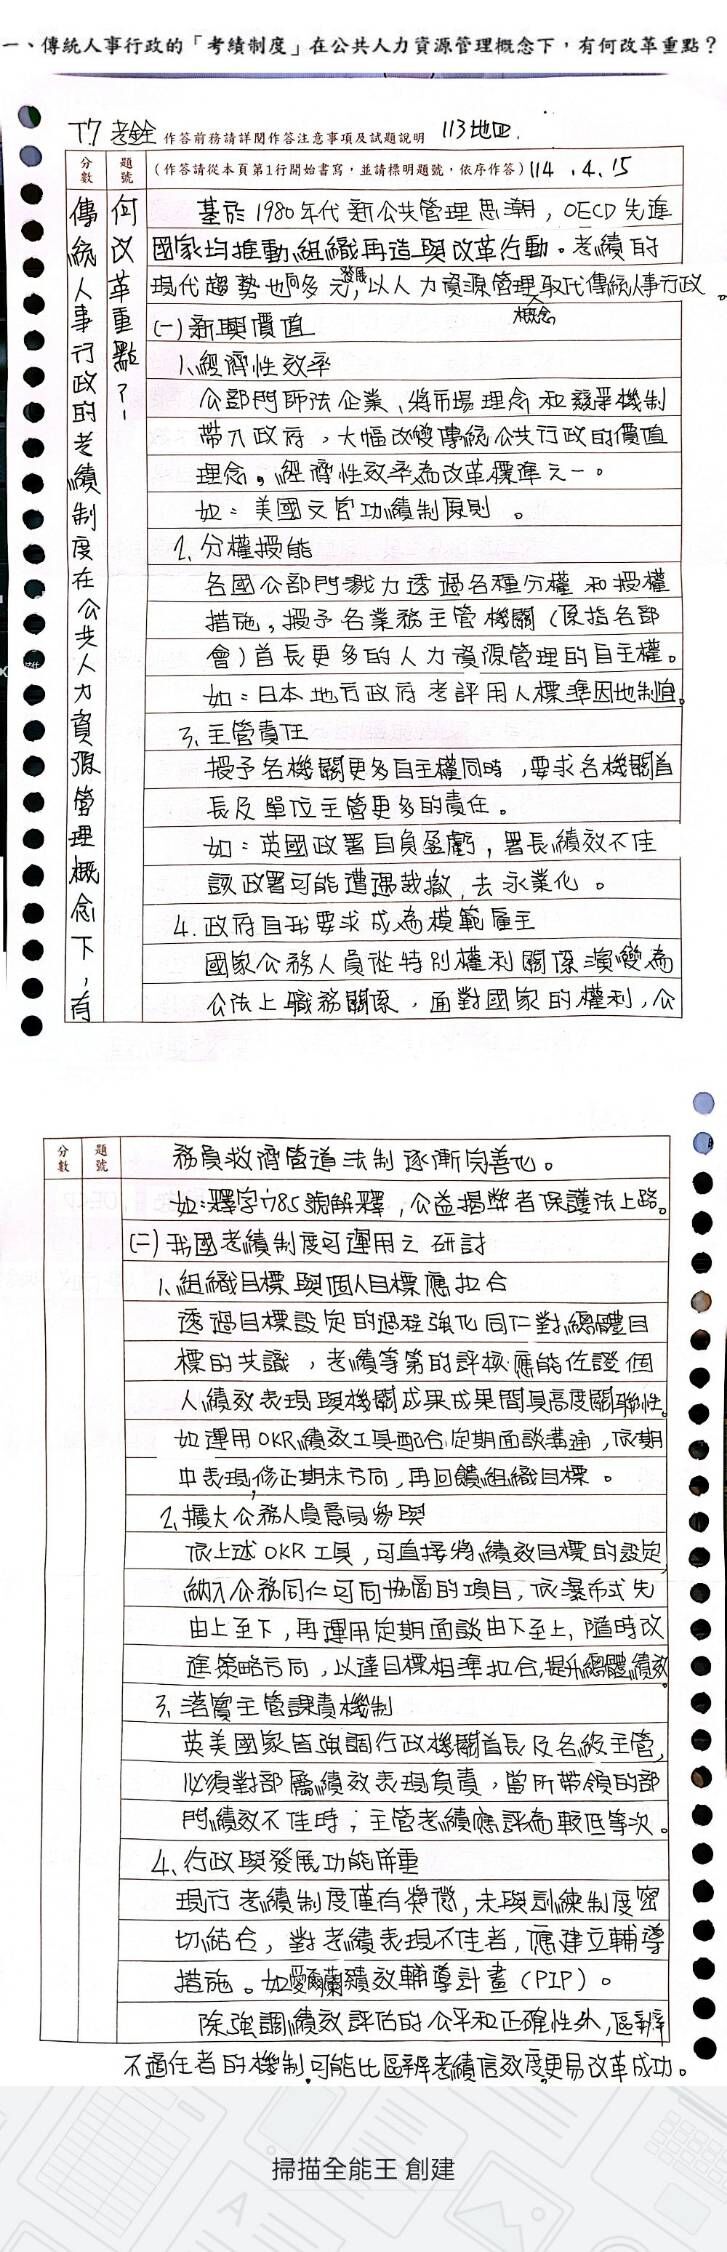 一、傳統人事行政的「考績制度」在公共人力資源管理概念下，有何改革重點？
作答前務請詳閱作答注意事項及試題說明 113地四.
分數 題號 （作答請從本頁第1行開始書寫，並請標明題號，依序作答） 114 .4.15
傳統人事行政的考績制度在公共人力資源管理概念下，有
何改革重點？
基於1980年代新公共管理思潮，OECD先進
國家均推動組織再造與改革行動。考績的
現代趨勢也向多元發展，以人力資源管理概念取代傳統人事行政。
(一)新興價值
1、經濟性效率
公部門師法企業、將市場理念和競爭機制
帶入政府，大幅改變傳統公共行政的價值
理念。經濟性效率為改革標準之一。
如：美國文官功績制原則。
2、分權授能
各國公部門戮力透過各種分權和授權
措施，授予各業務主管機關（係指各部
會）首長更多的人力資源管理的自主權。
如：日本地方政府考評用人標準因地制宜。
3、主管責任
授予各機關更多自主權同時，要求各機關首
長及單位主管更多的責任。
如：英國政署自負盈虧，署長績效不佳
該政署可能遭遇裁撤，去永業化。
4.政府自我要求成為模範雇主
國家公務人員從特別權利關係演變為
公法上職務關係，面對國家的權利，公
分數 題號
務員救濟管道法制逐漸完善化。
如：釋字785號解釋，公益揭弊者保護法上路。
(二)我國考績制度可運用之研討
1、組織目標與個人目標應扣合
透過目標設定的過程強化同仁對總體目
標的共識，考績等第的評核應能佐證個
人績效表現與機關成果成果間具高度關聯性。
如運用OKR績效工具配合定期面談溝通，依期
中表現修正期末方向，再回饋組織目標。
2、擴大公務人員意見參與
依上述OKR工具，可直接將績效目標的設定，
納入公務同仁可同協商的項目，依瀑布式先
由上至下，再運用定期面談由下至上，隨時改
進策略方向，以達目標相準扣合，提升總體績效。
3、落實主管課責機制
英美國家皆強調行政機關首長及各級主管，
必須對部屬績效表現負責，當所帶領的部
門績效不佳時；主管考績應評為較低等次。
4、行政與發展功能併重
現行考績制度僅有獎懲，未與訓練制度密
切結合，對考績表現不佳者，應建立輔導
措施。如愛爾蘭績效輔導計畫（PIP）。
除強調績效評估的公平和正確性外，區辨
不適任者的機制，可能比區辨考績信效度更易改革成功。
掃描全能王 創建